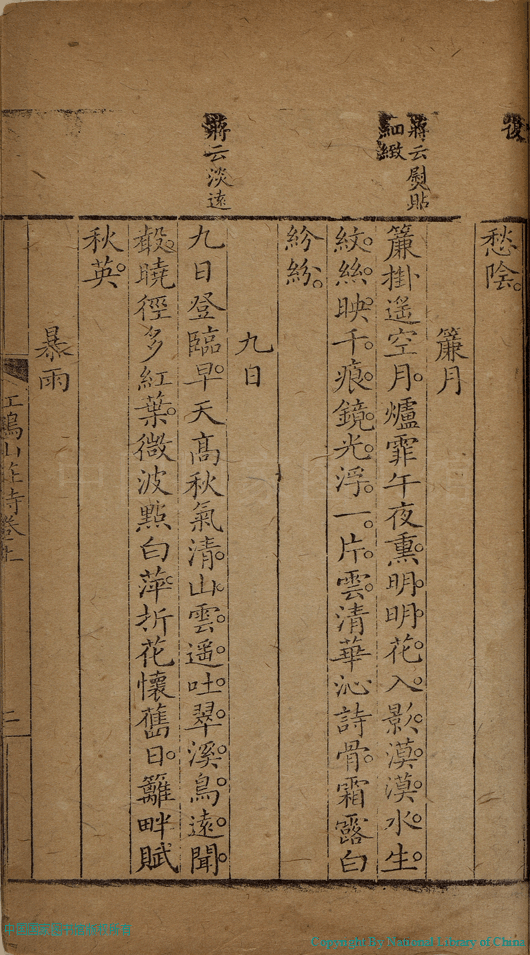 復
蔣云熨貼
細緻
蔣云淡遠
愁陰
簾月
簾掛遥空月爐霏午夜熏明明花入影漠漠水生
紋絲映千痕鏡光浮一片雲清華沁詩骨霜露白
紛紛
九日
九日登臨早天高秋氣清山雲遥吐翠溪鳥遠聞
曉徑多紅葉微波點白萍折花懷舊日籬畔賦
秋英
暴雨
二
Copyright By National Library of China